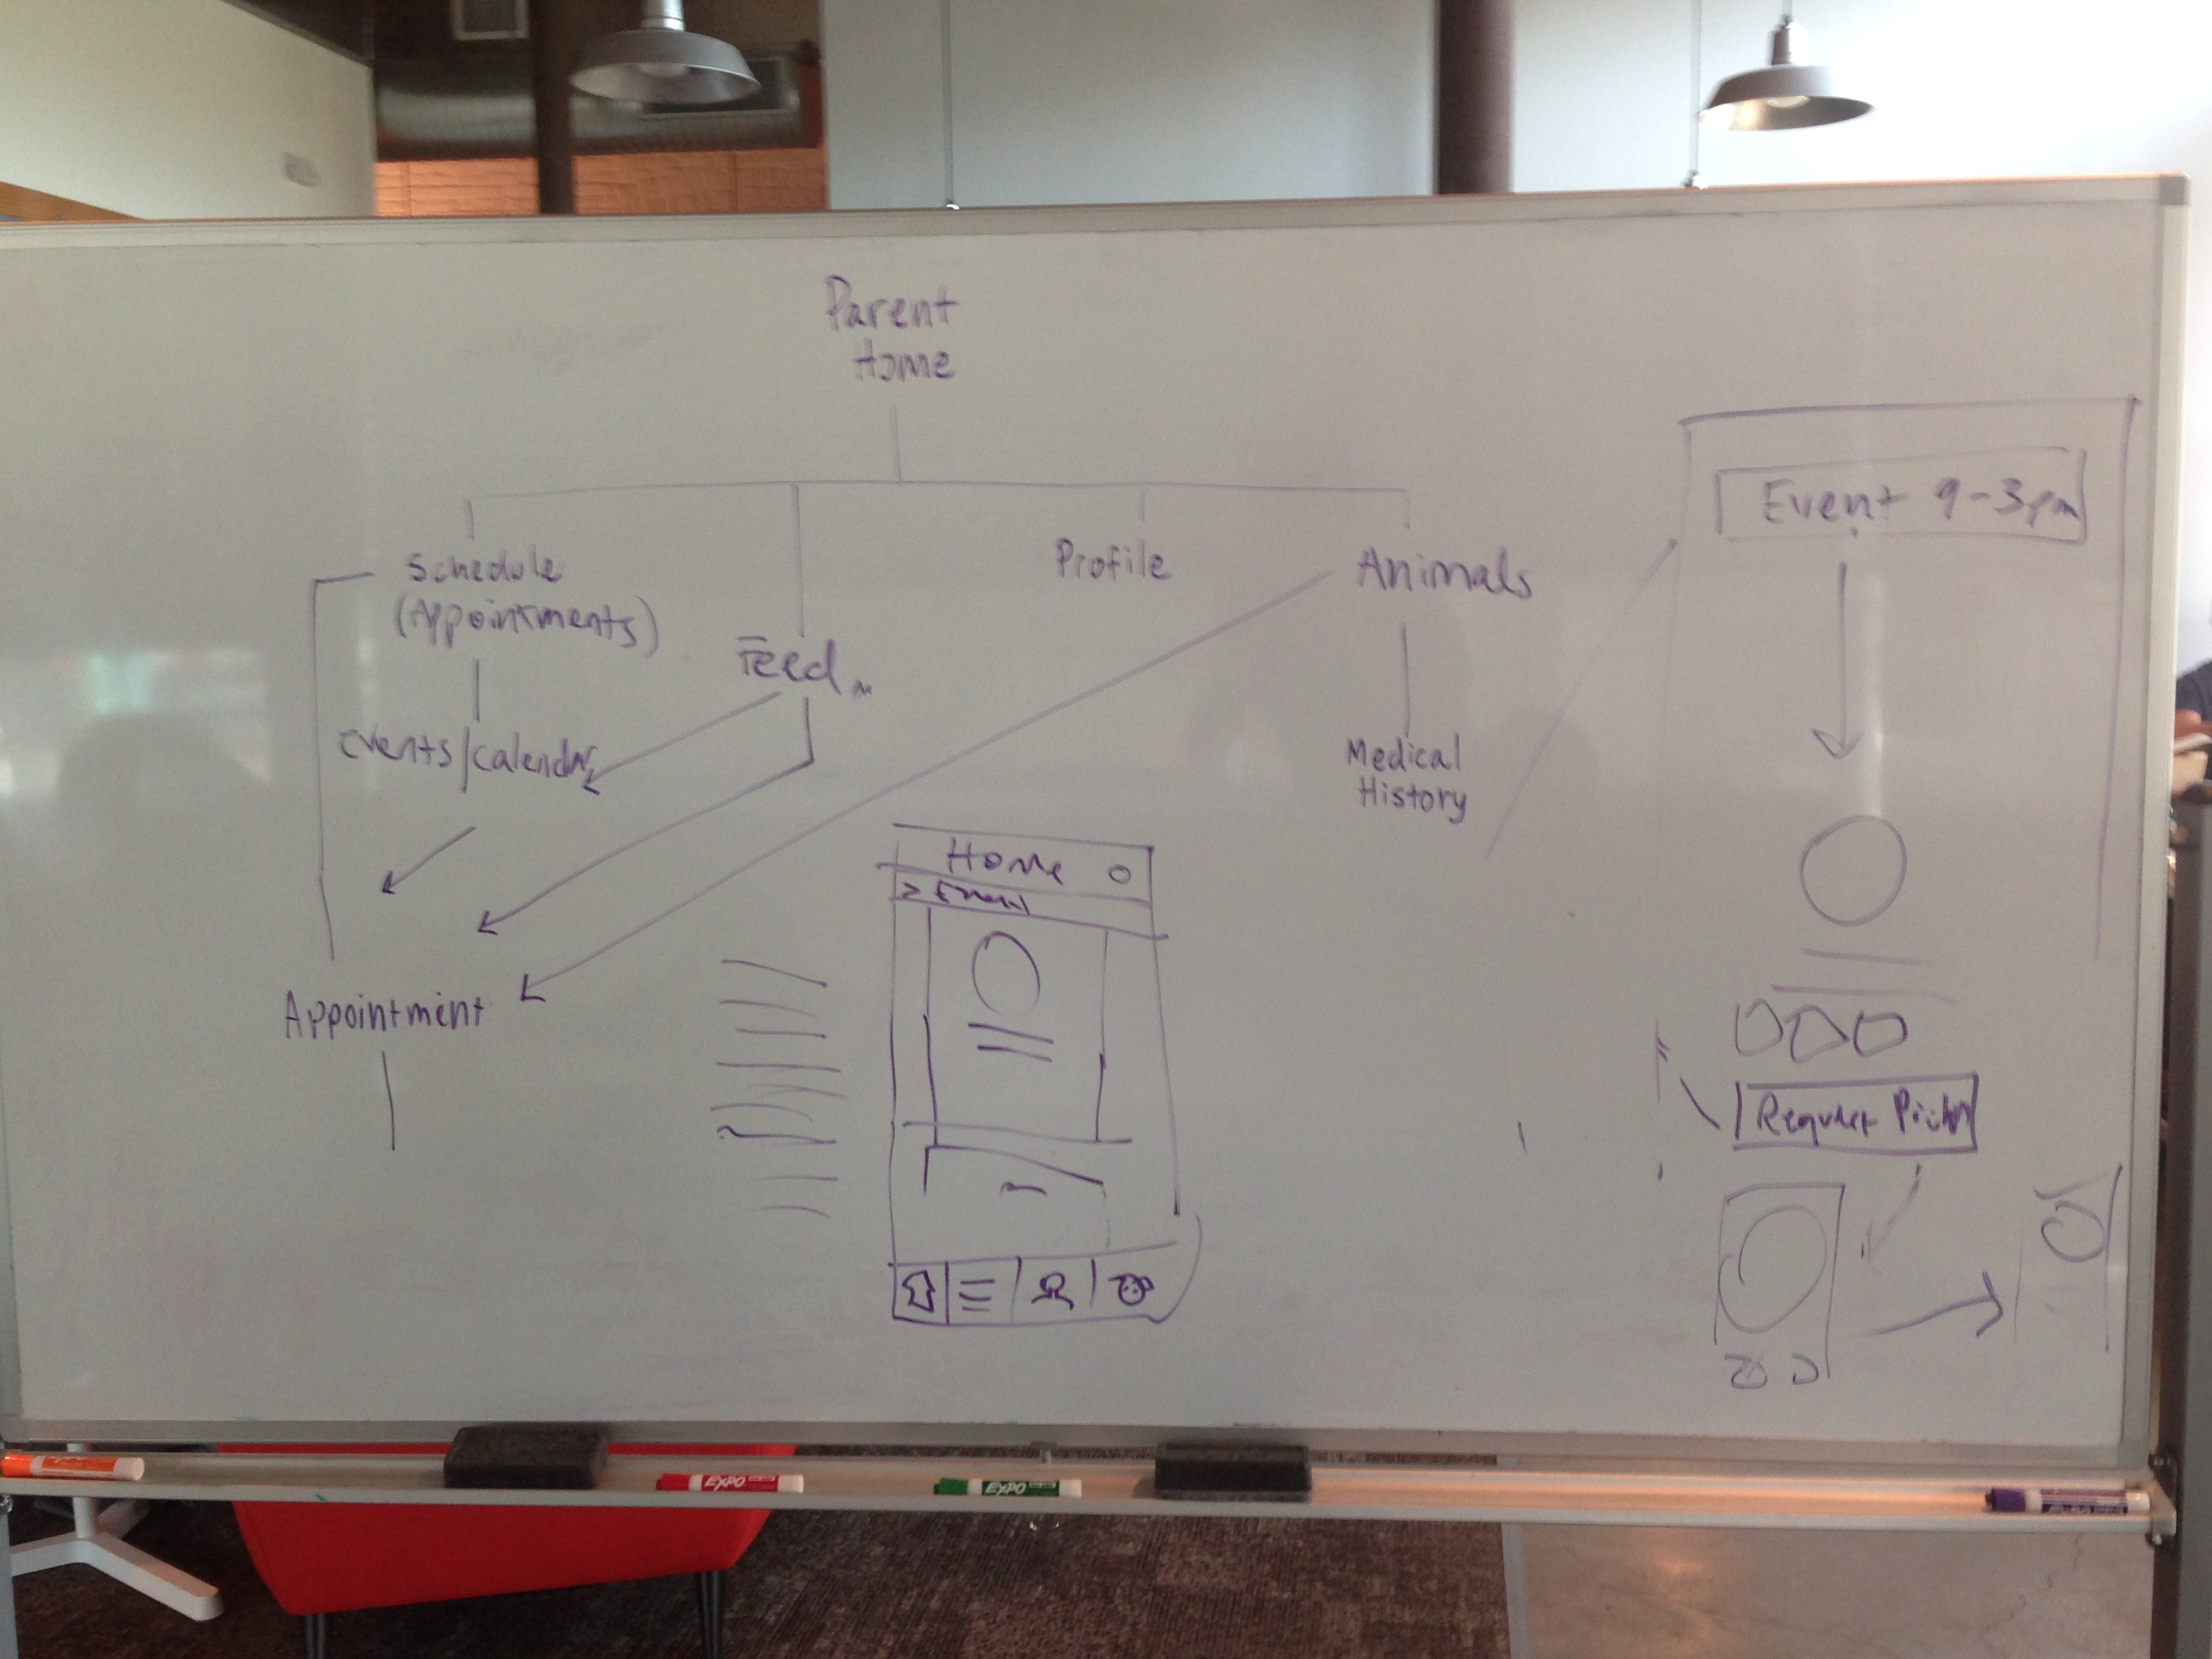 Parent
Home
Schedule
(Appointments)
Feed
Profile
Animals
Events/calendar
Medical
History
Appointment
Home
> Event
Event 9-3pm
Request
EXPO
EXPO